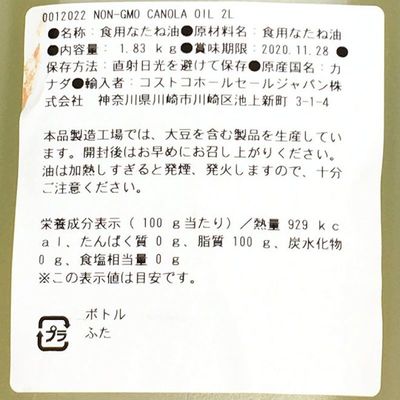 0012022 NON-GMO CANOLA OIL 2L
●名称：食用なたね油●原材料名：食用なたね油
●内容量：1.83 kg●賞味期限：2020.11.28 ●
保存方法：直射日光を避けて保存●原産国名：カ
ナダ●輸入者：コストコホールセールジャパン株
式会社 神奈川県川崎市川崎区池上新町 3-1-4
本品製造工場では、大豆を含む製品を生産してい
ます。開封後はお早めにお召し上がりください。
油は加熱しすぎると発煙、発火しますので、十分
ご注意ください。
栄養成分表示（100ｇ当たり）／熱量 929 ｋｃ
ａｌ、たんぱく質 0ｇ、脂質 100ｇ、炭水化物
0ｇ、食塩相当量 0ｇ
※この表示値は目安です。
ボトル
プラ ふた